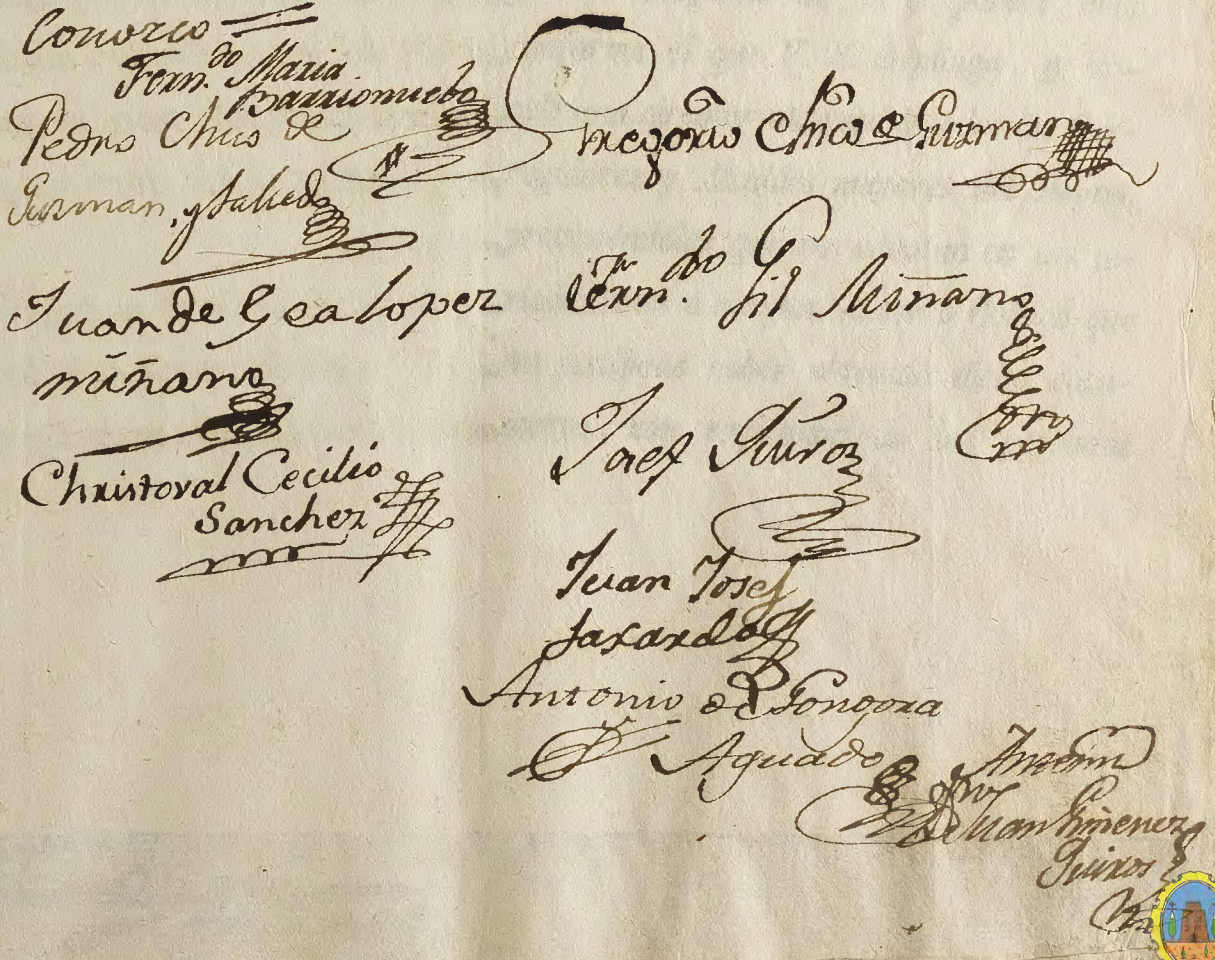 Conozco =
Fern.do Maria
Barrionuebo
Pedro Chico de
Guzman, y Salcedo
Gregorio Chico de Guzman
Juan de Gea Lopez
miñano
Fern.do Gil Miñano
Christoval Cecilio
Sanchez
Josef Quiroz
Juan Josef
faxardo
Antonio de Gongora
Aguado
Juan Gimenez
Quiros